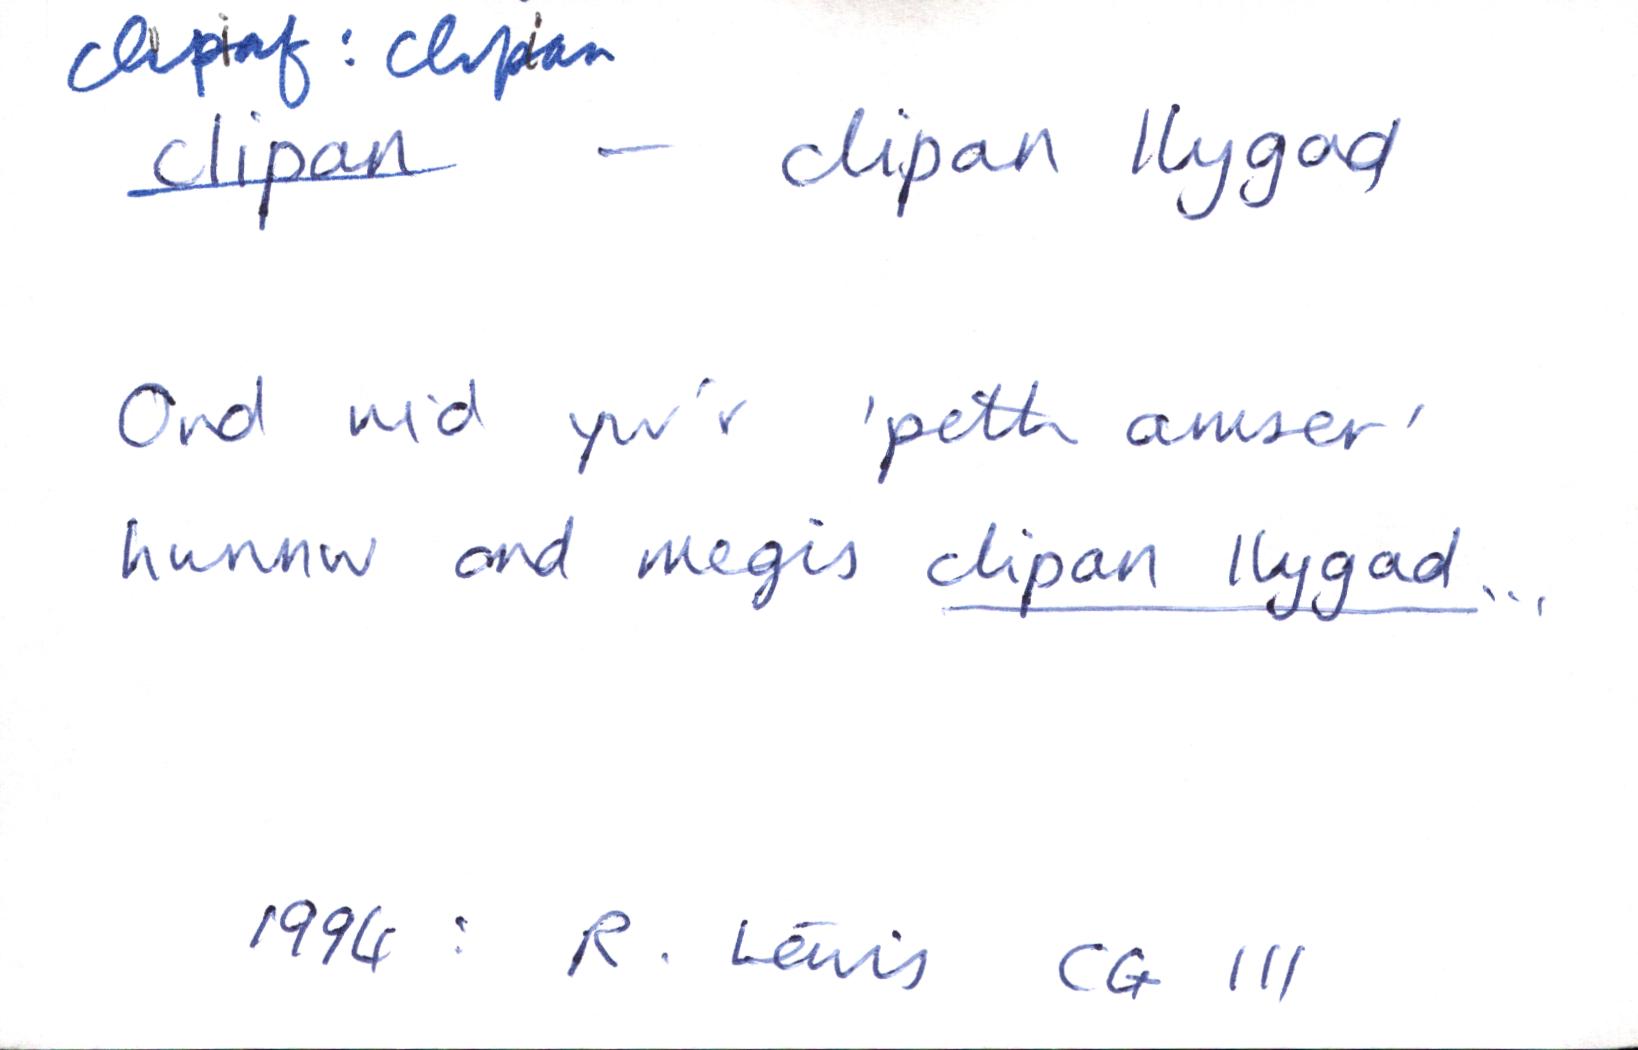 clipiaf: clipian
clipan — clipan llygad
Ond nid yw'r 'peth amser'
hwnnw ond megis clipan llygad...
1994: R. Lewis CG 111